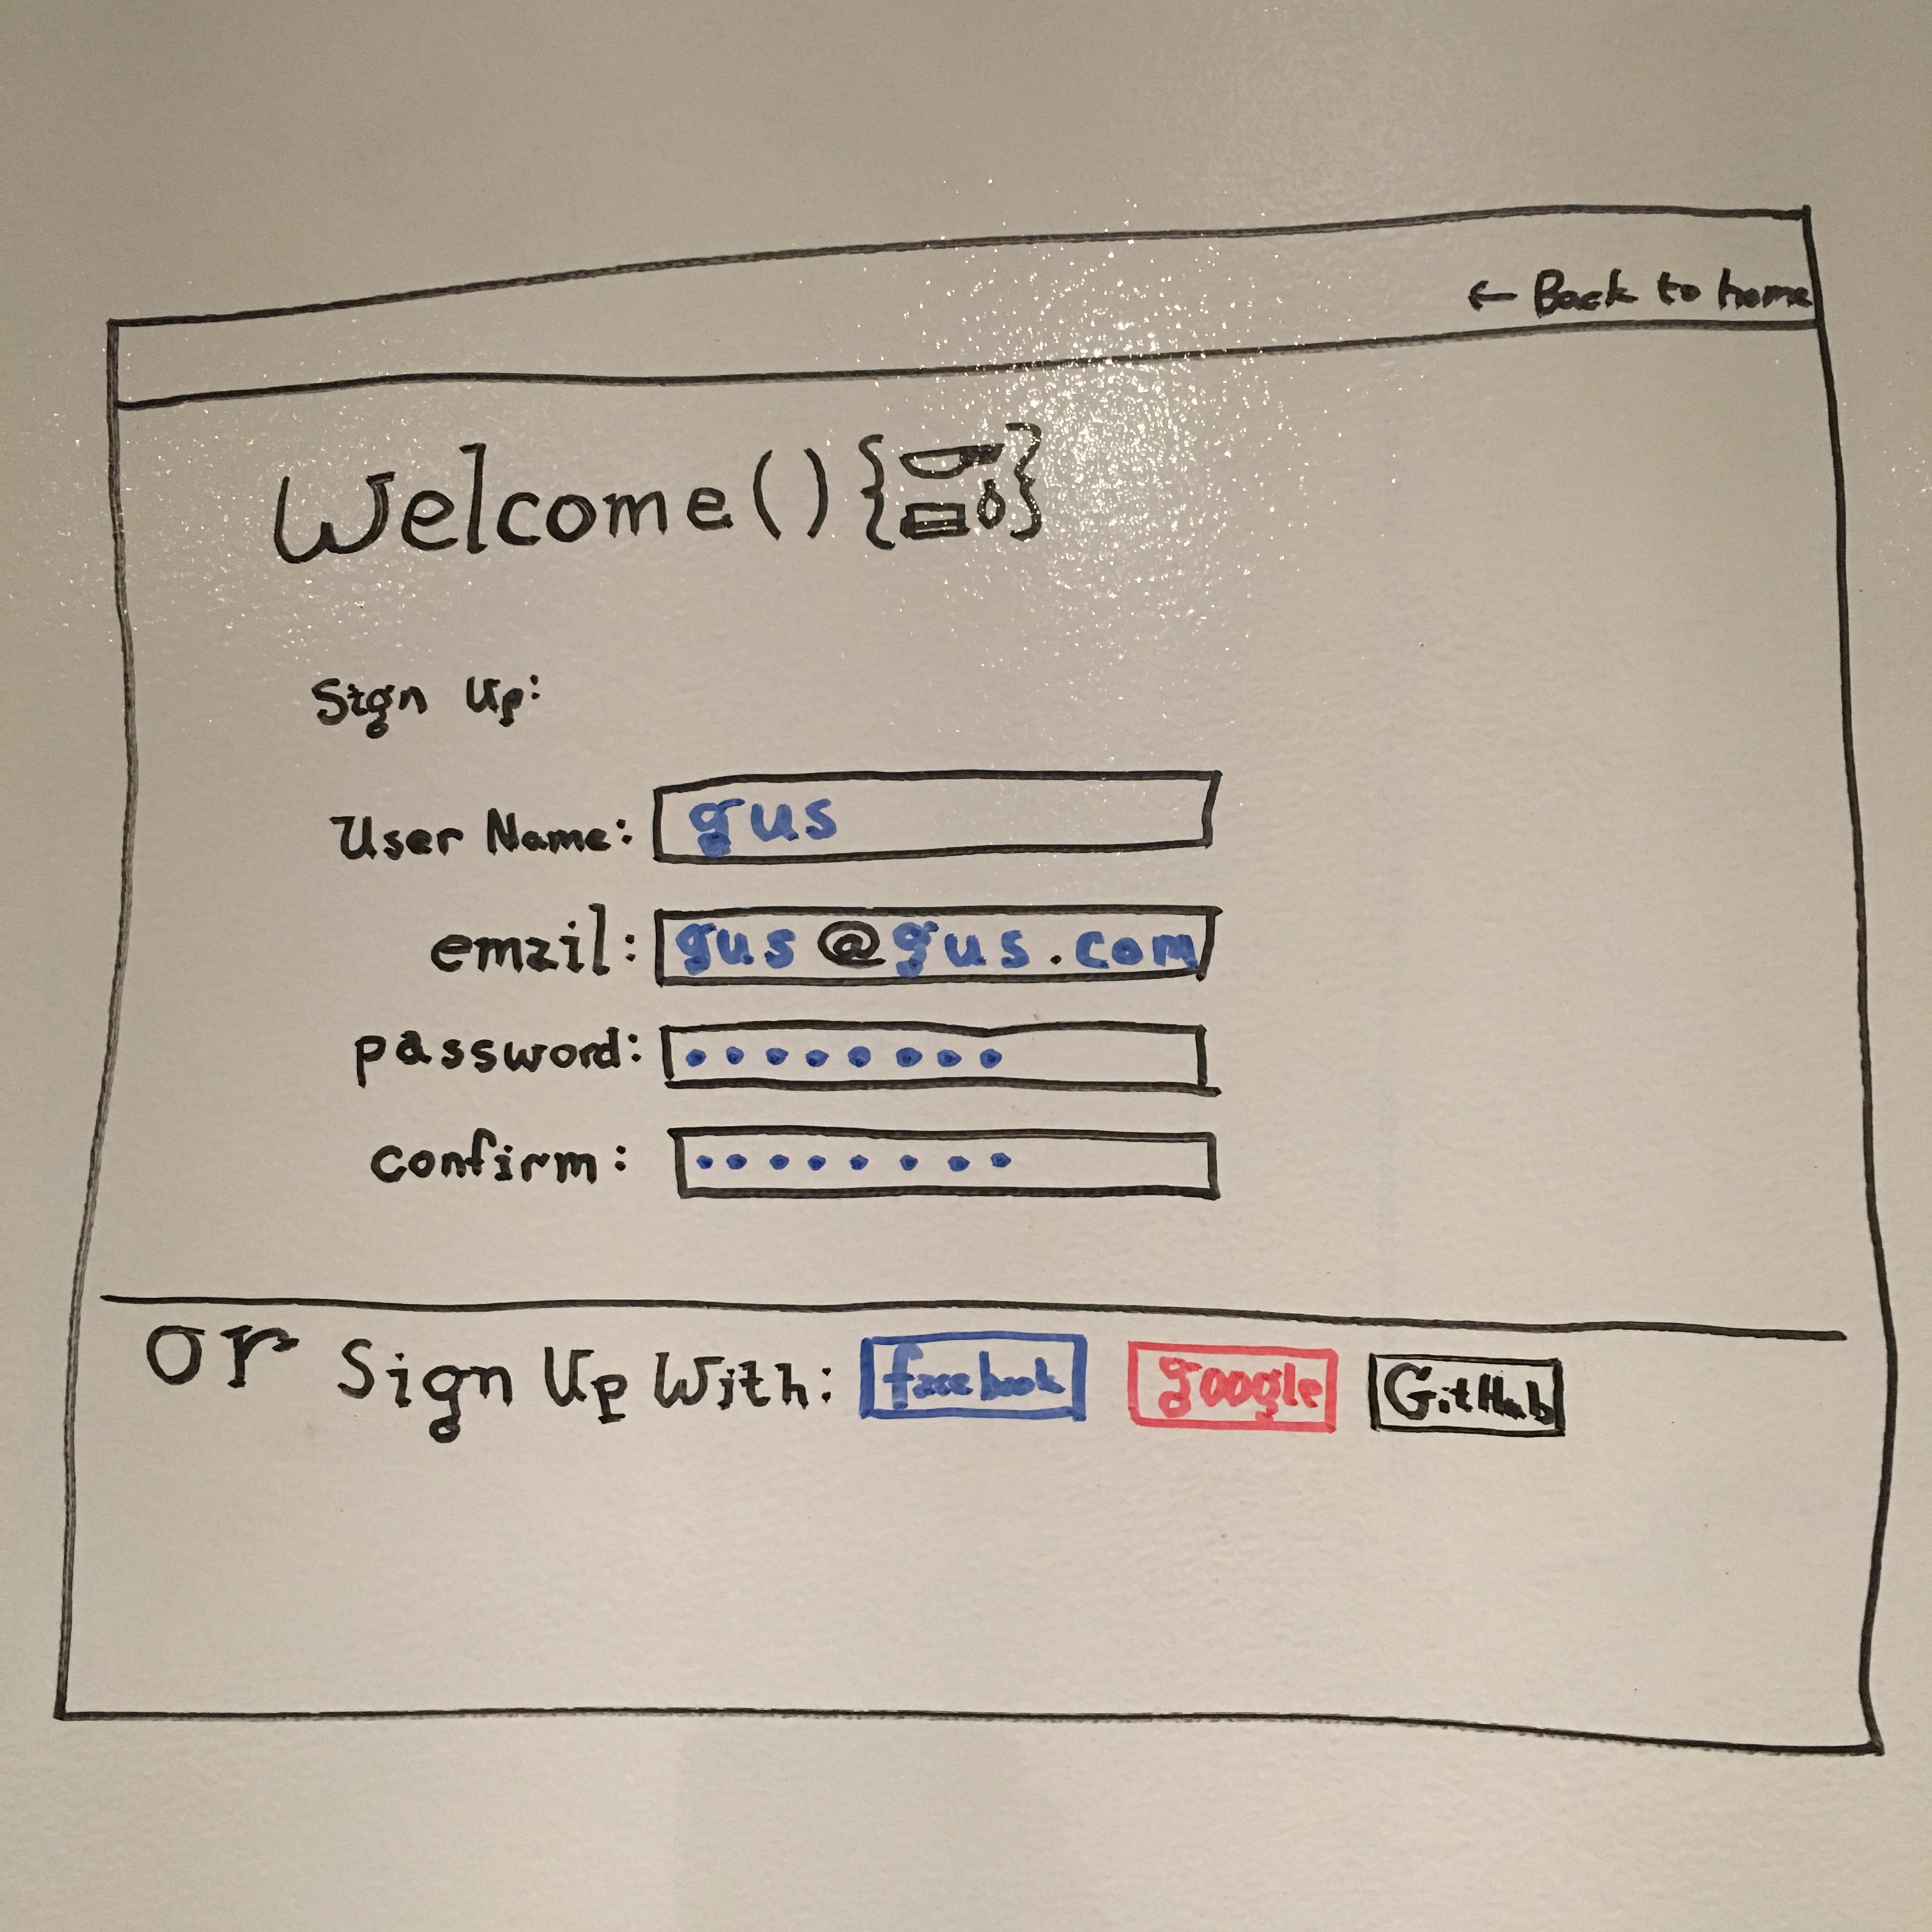 ← Back to home
Welcome(){}
Sign Up:
User Name: gus
email: gus@gus.com
password: ••••••••
confirm: ••••••••
or Sign Up With: facebook google GitHub